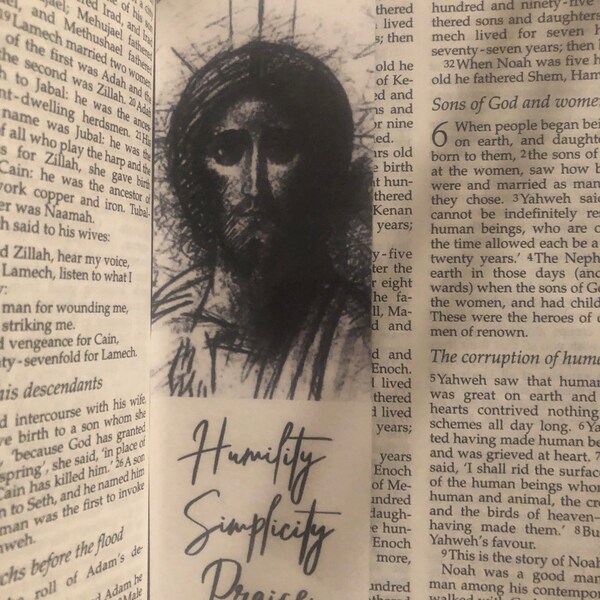 Irad, and Irad
jael; Mehujael fathered
and Methushael fathered
19 Lamech married two women:
of the first was Adah and the
the second was Zillah. 20 Adah
h to Jabal: he was the ances-
ent-dwelling herdsmen. 21 His
name was Jubal: he was the
of all who play the harp and the
s for Zillah, she gave birth
Cain: he was the ancestor of
work copper and iron. Tubal-
er was Naamah.
h said to his wives:
d Zillah, hear my voice,
Lamech, listen to what I
y:
man for wounding me,
striking me.
d vengeance for Cain,
ty-sevenfold for Lamech.
his descendants
d intercourse with his wife,
ve birth to a son whom she
'because God has granted
spring', she said, 'in place of
Cain has killed him.' 26 A son
n to Seth, and he named him
man was the first to invoke
hweh.
chs before the flood
roll of Adam's de-
Humility
Simplicity
Praise
thered
lived
s; then
old he
of Ke-
ed and
ns and
r nine
ed.
ars old
e birth
t hun-
thered
Kenan
years;
y-five
ter the
r eight
he fa-
ll, Ma-
d and
d and
Enoch.
lived
thered
d lived
years;
years
Enoch
of Me-
undred
daugh-
e hun-
Enoch
more,
undred
hundred and ninety-five
thered sons and daughters
mech lived for seven h
seventy-seven years; then
32 When Noah was five h
old he fathered Shem, Ham
Sons of God and wome
6 When people began bei
on earth, and daughte
born to them, 2 the sons of
at the women, saw how b
were and married as man
they chose. 3 Yahweh said
cannot be indefinitely res
human beings, who are o
the time allowed each be a
twenty years.' 4 The Neph
earth in those days (and
wards) when the sons of Go
the women, and had child
These were the heroes of
men of renown.
The corruption of huma
5 Yahweh saw that human
was great on earth and
hearts contrived nothing
schemes all day long. 6 Ya
ted having made human be
and was grieved at heart. 7
said, 'I shall rid the surface
of the human beings whom
human and animal, the cre
and the birds of heaven—
having made them.' 8 Bu
Yahweh's favour.
9 This is the story of Noah
Noah was a good man
man among his contempor